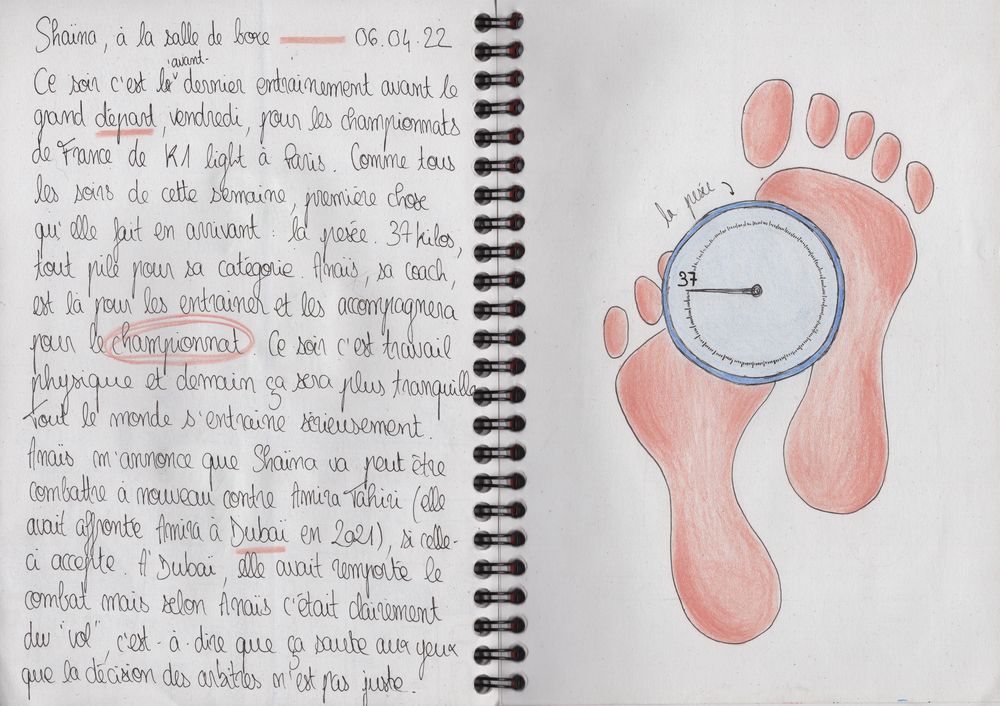 Shaïna, à la salle de boxe 06.04.22
Ce soir c'est le avant-dernier entrainement avant le
grand départ, vendredi, pour les championnats
de France de K1 light à Paris. Comme tous
les soirs de cette semaine, première chose
qu'elle fait en arrivant : la pesée. 37 kilos,
tout pile pour sa catégorie. Anaïs, sa coach,
est là pour les entrainer et les accompagnera
pour le championnat. Ce soir c'est travail
physique et demain ça sera plus tranquille.
Tout le monde s'entraine sérieusement.
Anaïs m'annonce que Shaïna va peut être
combattre à nouveau contre Amira Tahiri (elle
avait affronté Amira à Dubaï en 2021), si celle-
ci accepte. A Dubaï, elle avait remporté le
combat mais selon Anaïs c'était clairement
du "vol", c'est-à-dire que ça saute aux yeux
que la décision des arbitres n'est pas juste.
la pesée
37